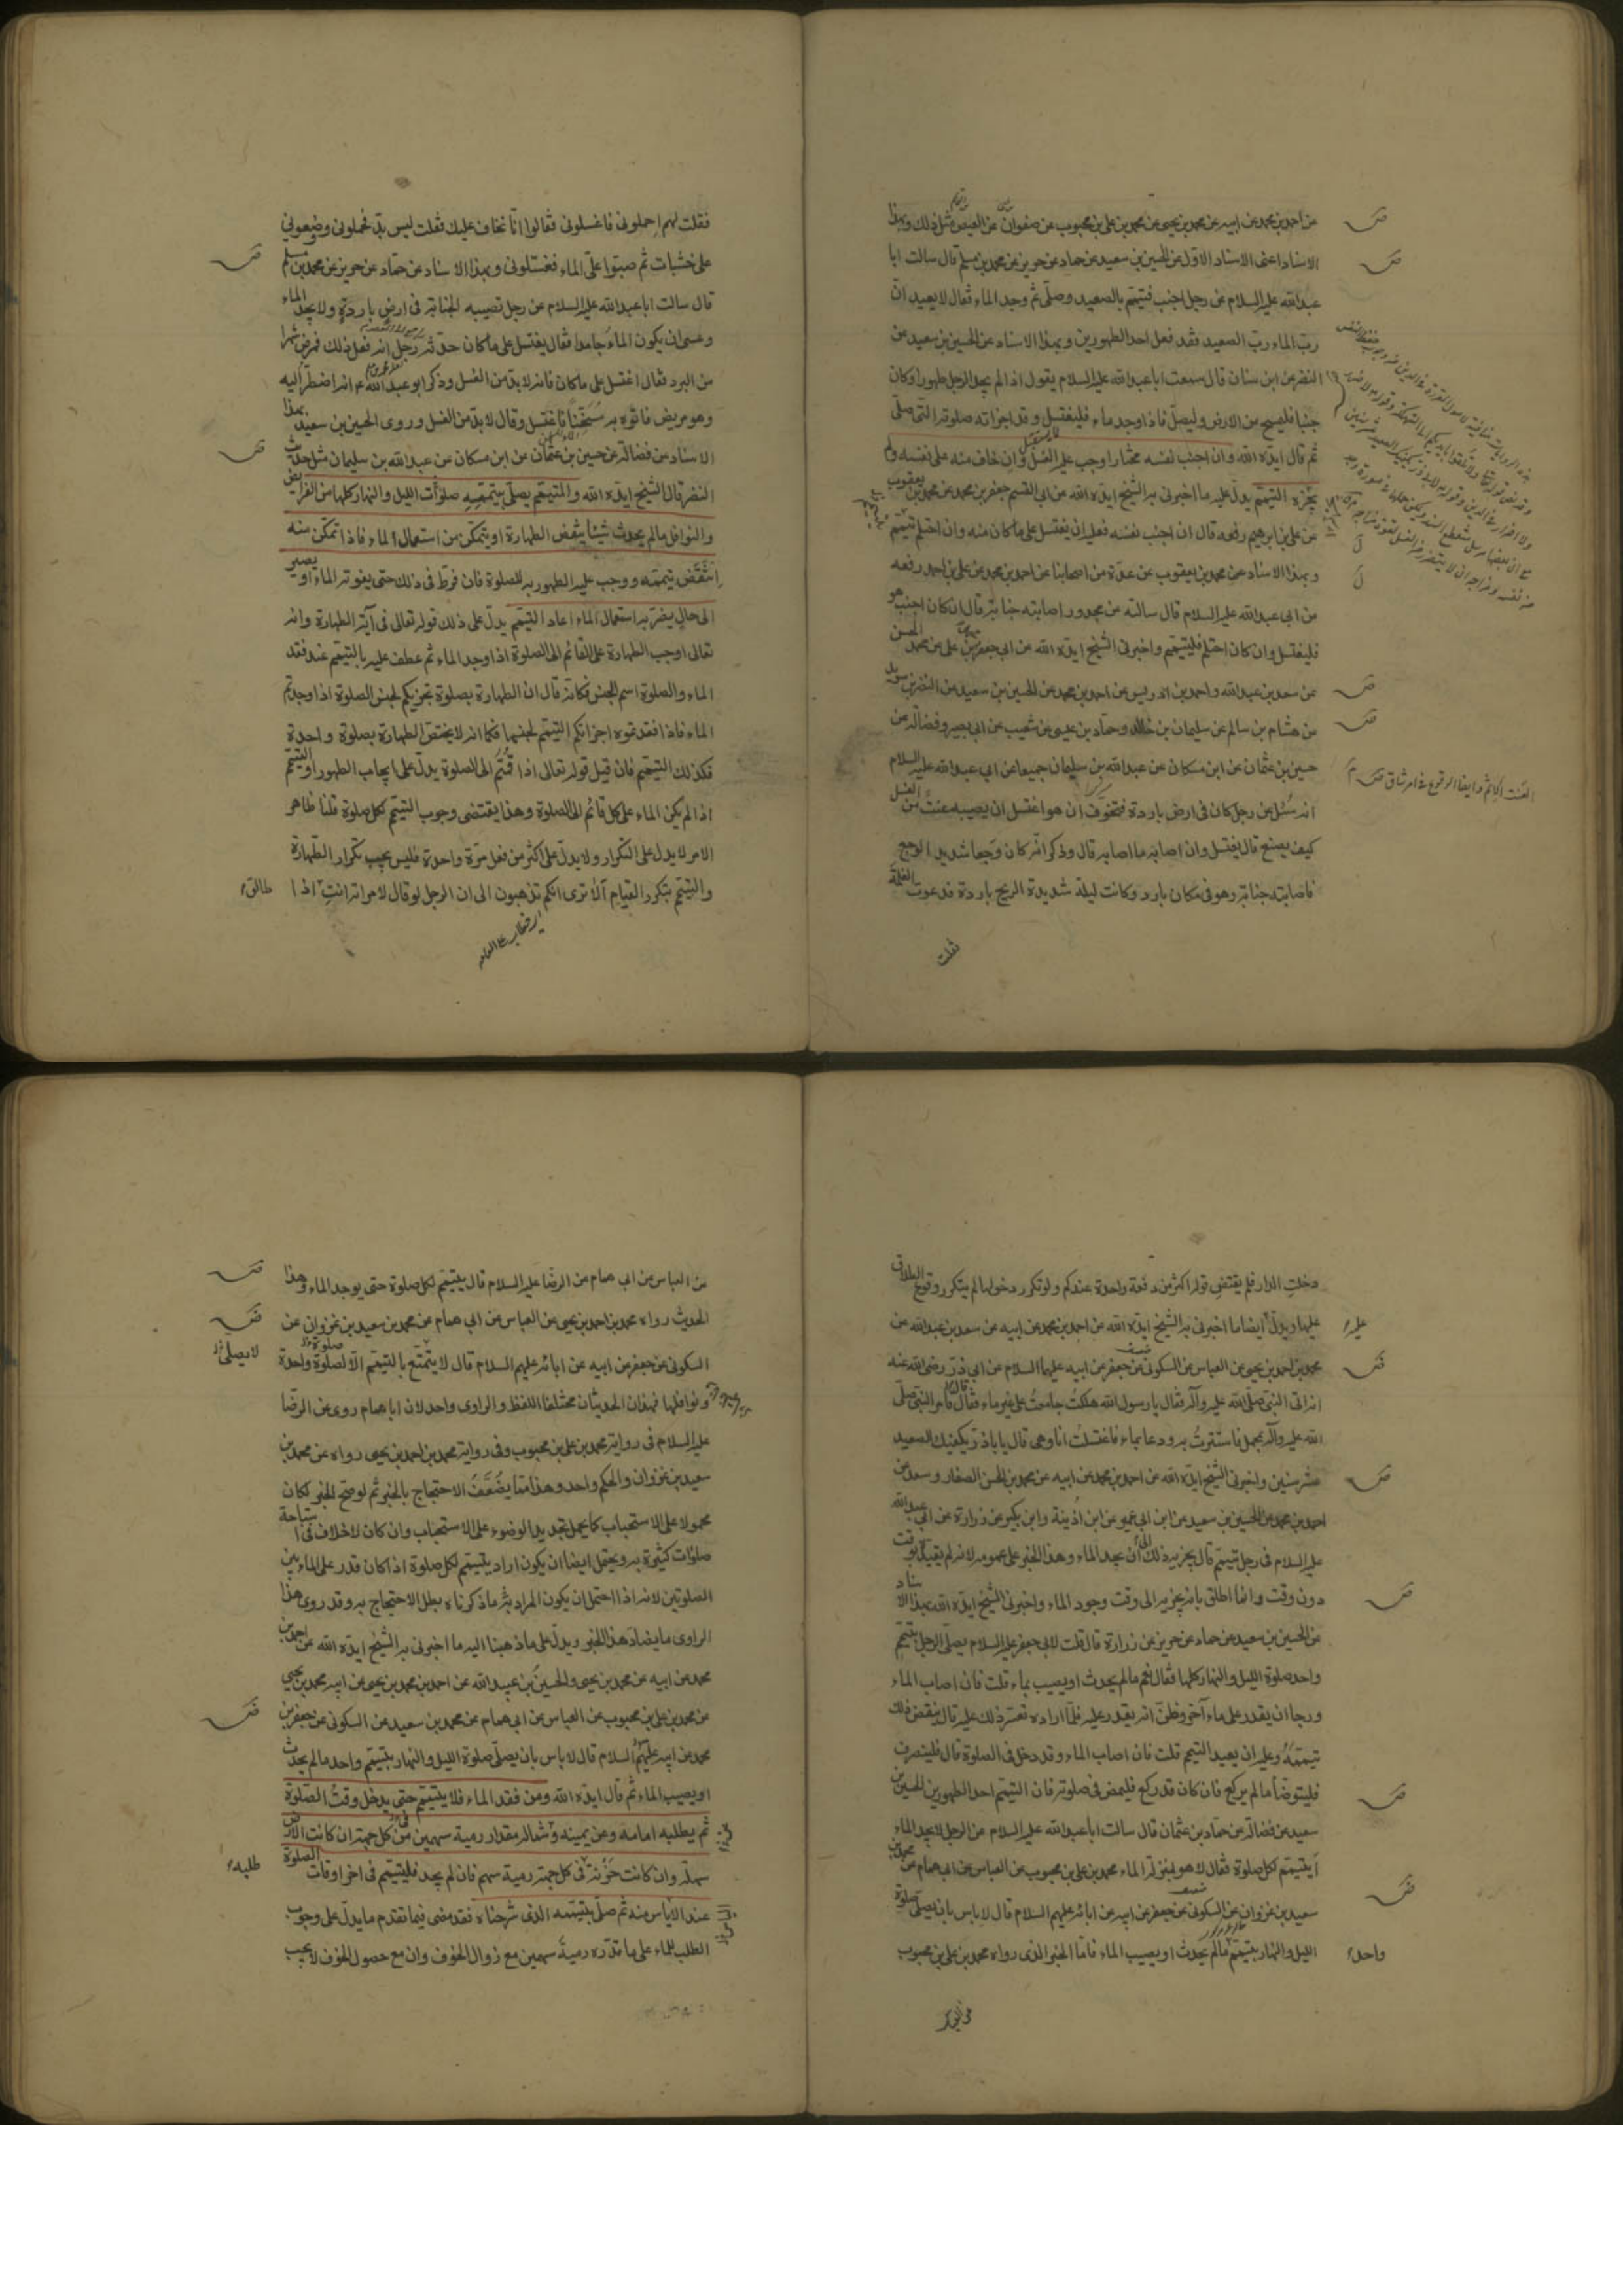 عن احمد بن محمد عن ابيه عن محمد بن يحيى عن محمد بن على بن محبوب عن صفوان عن العيص مثل ذلك وبهذا
الاسناد اعنى الاسناد الاول عن الحسين بن سعيد عن حماد عن حريز عن محمد بن مسلم قال سالت ابا
عبدالله عليه السلام عن رجل اجنب فتيمم بالصعيد وصلى ثم وجد الماء فقال لا يعيد ان
رب الماء رب الصعيد فقد فعل احد الطهورين وبهذا الاسناد عن الحسين بن سعيد عن
النضر عن ابن سنان قال سمعت ابا عبدالله عليه السلام يقول اذا لم يجد الرجل طهورا وكان
جنبا فليمسح من الارض وليصل فاذا وجد ماء فليغتسل وقد اجزاته صلوته التى صلى
ثم قال ايده الله وان اجنب نفسه مختارا وجب عليه الغسل وان خاف منه على نفسه ولم
يجزه التيمم يدل عليه ما اخبرنى به الشيخ ايده الله عن ابى القسم جعفر بن محمد عن محمد بن يعقوب
عن على بن ابرهيم رفعه قال ان اجنب نفسه فعليه ان يغتسل على ما كان منه وان احتلم تيمم
وبهذا الاسناد عن محمد بن يعقوب عن عدة من اصحابنا عن احمد بن محمد عن على بن احمد رفعه
عن ابى عبدالله عليه السلام قال سالته عن مجدور اصابته جنابة قال ان كان اجنب هو
فليغتسل وان كان احتلم فليتيمم واخبرنى الشيخ ايده الله عن ابى جعفر محمد بن على عن محمد بن الحسن
عن سعد بن عبدالله واحمد بن ادريس عن احمد بن محمد عن الحسين بن سعيد عن النضر بن سويد
عن هشام بن سالم عن سليمان بن خالد وحماد بن عيسى عن شعيب عن ابى بصير وفضالة عن
حسين بن عثمان عن ابن مسكان عن عبدالله بن سليمان جميعا عن ابى عبدالله عليه السلام
انه سئل عن رجل كان فى ارض باردة فتخوف ان هو اغتسل ان يصيبه عنت من الغسل
كيف يصنع قال يغتسل وان اصابه ما اصابه قال وذكر انه كان وجعا شديد الوجع
فاصابته جنابة وهو فى مكان بارد وكانت ليلة شديدة الريح باردة فدعوت الغلمة
فقلت
فقلت لهم احملونى فاغسلونى فقالوا انا نخاف عليك فقلت ليس بد فحملونى ووضعونى
على خشبات ثم صبوا على الماء فغسلونى وبهذا الاسناد عن حماد عن حريز عن محمد بن مسلم
قال سالت ابا عبدالله عليه السلام عن رجل تصيبه الجنابة فى ارض باردة ولا يجد الماء
وعسى ان يكون الماء جامدا فقال يغتسل على ما كان حدثه رجل انه فعل ذلك فمرض شهرا
من البرد فقال اغتسل على ما كان فانه لا بد من الغسل وذكر ابو عبدالله ع انه اضطر اليه
وهو مريض فاتوه به مسخنا فاغتسل وقال لا بد من الغسل وروى الحسين بن سعيد بهذا
الاسناد عن فضالة عن حسين بن عثمان عن ابن مسكان عن عبدالله بن سليمان مثل حديث
النضر قال الشيخ ايده الله والمتيمم يصلى بتيممه صلوات الليل والنهار كلها من الفرايض
والنوافل ما لم يحدث شيئا ينقض الطهارة او يتمكن من استعمال الماء فاذا تمكن منه
انتقض تيممه ووجب عليه الطهور به للصلوة فان فرط فى ذلك حتى يفوته الماء او يصير
الى حال يضر به استعمال الماء اعاد التيمم يدل على ذلك قوله تعالى فى آية الطهارة وانه
تعالى اوجب الطهارة على القائم الى الصلوة اذا وجد الماء ثم عطف عليه بالتيمم عند فقد
الماء والصلوة اسم الجنس فكانه قال ان الطهارة بصلوة تجزيكم لجنس الصلوة اذا وجدتم
الماء فاذا فقدتموه اجزائكم التيمم لجنسها فكما انه لا يختص الطهارة بصلوة واحدة
فكذلك التيمم فان قيل قوله تعالى اذا قمتم الى الصلوة يدل على ايجاب الطهور او التيمم
اذا لم يكن الماء على كل قائم الى الصلوة وهذا يقتضى وجوب التيمم لكل صلوة قلنا ظاهر
الامر لا يدل على التكرار ولا يدل على اكثر من فعل مرة واحدة فليس يجب تكرار الطهارة
والتيمم بتكرر القيام الا ترى انكم تذهبون الى ان الرجل لو قال لامراته انت اذا
طالق
دخلت الدار فلم يقتض قوله اكثر من دفعة واحدة عندكم ولو تكرر دخولها لم يتكرر وقوع الطلاق
عليها ويدل ايضا ما اخبرنى به الشيخ ايده الله عن احمد بن محمد عن ابيه عن سعد بن عبدالله عن
محمد بن احمد بن يحيى عن العباس عن السكونى عن جعفر عن ابيه عليهما السلام عن ابى ذر رضى الله عنه
انه اتى النبى صلى الله عليه وآله فقال يا رسول الله هلكت جامعت على غير ماء فقال فامر النبى صلى
الله عليه وآله بمحمل فاستترت به ودعا بماء فاغتسلت انا وهى قال يا باذر يكفيك الصعيد
عشر سنين واخبرنى الشيخ ايده الله عن احمد بن محمد عن ابيه عن محمد بن الحسن الصفار وسعد عن
احمد بن محمد عن الحسين بن سعيد عن ابن ابى عمير عن ابن اذينة وابن بكير عن زرارة عن ابى عبدالله
عليه السلام فى رجل تيمم قال يجزيه ذلك الى ان يجد الماء وهذا الخبر على عمومه لانه لم يقيد بوقت
دون وقت وانما اطلق بانه يجزيه الى وقت وجود الماء واخبرنى الشيخ ايده الله بهذا الاسناد
عن الحسين بن سعيد عن حماد عن حريز عن زرارة قال قلت لابى جعفر عليه السلام يصلى الرجل بتيمم
واحد صلوة الليل والنهار كلها فقال نعم ما لم يحدث او يصيب بماء قلت فان اصاب الماء
ورجا ان يقدر على ماء آخر وظن انه يقدر عليه فلما اراده تعسر ذلك عليه قال ينقض ذلك
تيممه وعليه ان يعيد التيمم قلت فان اصاب الماء وقد دخل فى الصلوة قال فلينصرف
فليتوضأ ما لم يركع فان كان قد ركع فليمض فى صلوته فان التيمم احد الطهورين الحسين بن
سعيد عن فضالة عن حماد بن عثمان قال سالت ابا عبدالله عليه السلام عن الرجل لا يجد الماء
أيتيمم لكل صلوة فقال لا هو بمنزلة الماء محمد بن على بن محبوب عن العباس عن ابى همام عن محمد بن
سعيد بن غزوان عن السكونى عن جعفر عن ابيه عن ابائه عليهم السلام قال لا باس بان يصلى صلوة
الليل والنهار بتيمم ما لم يحدث او يصيب الماء فاما الخبر الذى رواه محمد بن على بن محبوب
واحد
عن العباس عن ابى همام عن الرضا عليه السلام قال يتيمم لكل صلوة حتى يوجد الماء وهذا
الحديث رواه محمد بن احمد بن يحيى عن العباس عن ابى همام عن محمد بن سعيد بن غزوان عن
السكونى عن جعفر عن ابيه عن ابائه عليهم السلام قال لا يتمتع بالتيمم الا لصلوة واحدة
ونوافلها فهذان الحديثان مختلفا اللفظ والراوى واحد لان ابا همام روى عن الرضا
عليه السلام فى رواية محمد بن على بن محبوب وفى رواية محمد بن احمد بن يحيى رواه عن محمد بن
سعيد بن غزوان والحكم واحد وهذا مما يضعف الاحتجاج بالخبر ثم لو صح الخبر لكان
محمولا على الاستحباب كما يحمل تجديد الوضوء على الاستحباب وان كان لا خلاف فى استباحة
صلوات كثيرة به ويحتمل ايضا ان يكون اراد يتيمم لكل صلوة اذا كان قدر على الماء بين
الصلوتين لانه اذا احتمل ان يكون المراد به ما ذكرناه بطل الاحتجاج به وقد روى هذا
الراوى ما يضاد هذا الخبر ويدل على ما ذهبنا اليه ما اخبرنى به الشيخ ايده الله عن احمد بن
محمد عن ابيه عن محمد بن يحيى والحسين بن عبيدالله عن احمد بن محمد بن يحيى عن ابيه محمد بن يحيى
عن محمد بن على بن محبوب عن العباس عن ابى همام عن محمد بن سعيد عن السكونى عن جعفر بن
محمد عن ابيه عليهم السلام قال لا باس بان يصلى صلوة الليل والنهار بتيمم واحد ما لم يحدث
او يصيب الماء ثم قال ايده الله ومن فقد الماء فلا يتيمم حتى يدخل وقت الصلوة
ثم يطلبه امامه وعن يمينه وشماله مقدار رمية سهمين من كل جهة ان كانت الارض
سهلة وان كانت حزنة فى كل جهة رمية سهم فان لم يجد فليتيمم فى اخر اوقات الصلوة
عند الاياس منه ثم صلى بتيممه الذى شرحناه فقد مضى فيما تقدم ما يدل على وجوب
الطلب للماء على ما قدره رمية سهمين مع زوال الخوف وان مع حصول الخوف لا يجب
لا يصلى
طلبه